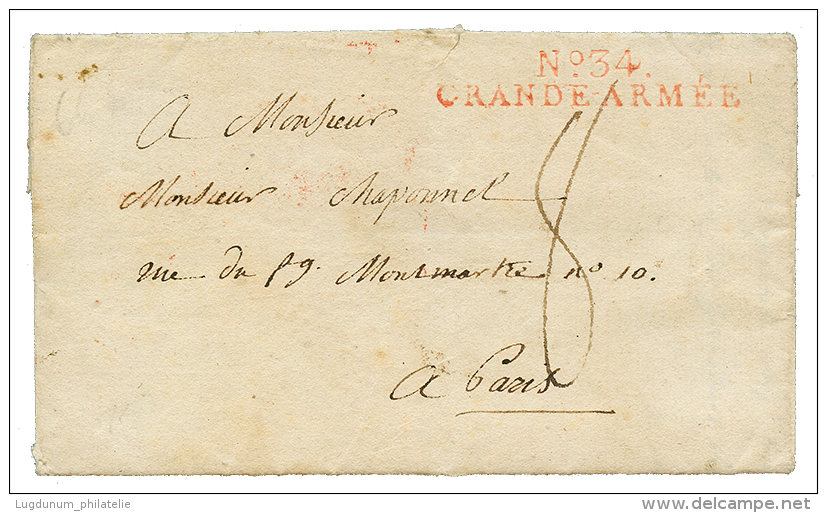 No. 34.
GRANDE-ARMÉE
A Monsieur
Monsieur Chaponnel
rue du fg. Montmartre no 10.
8
A Paris
Lugdunum_philatelie
www.delcampe.net